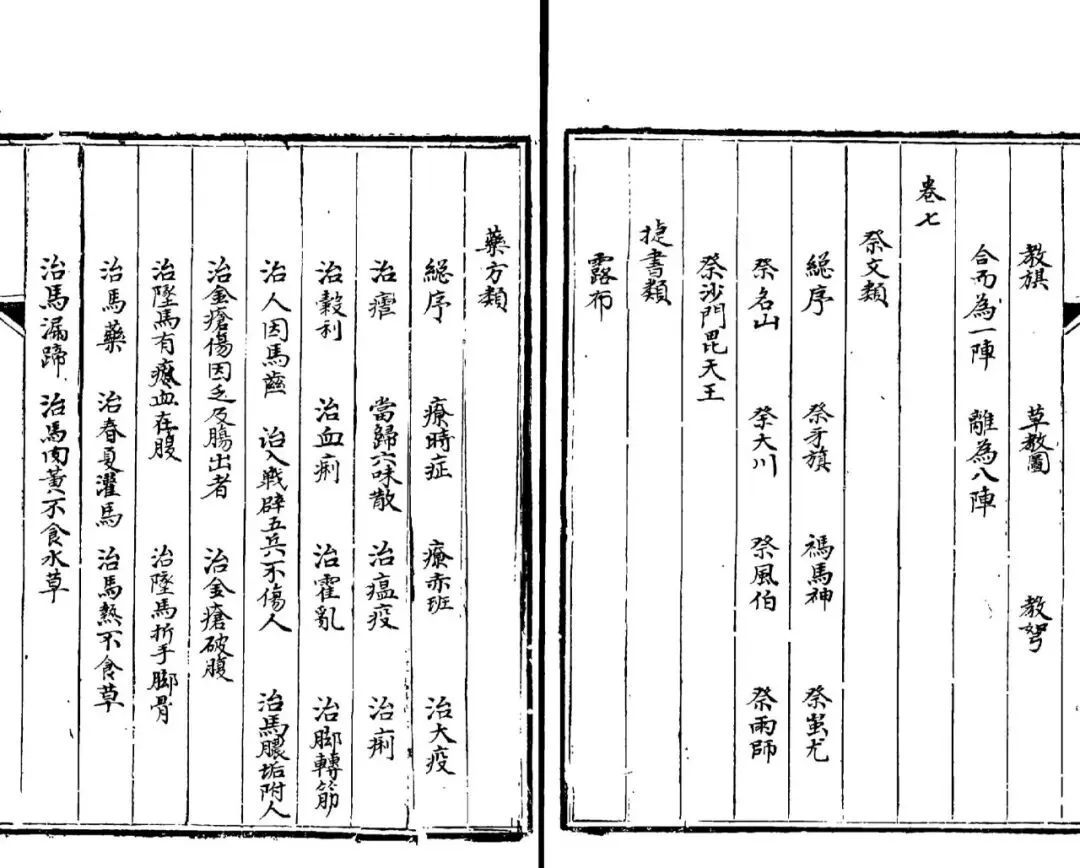 教旗 草教圖 教弩
合而為一陣 離為八陣
卷七
祭文類
緫序 祭牙旗 禡馬神 祭蚩尤
祭名山 祭大川 祭風伯 祭雨師
祭沙門毘天王
捷書類
露布
藥方類
緫序 療時症 療赤班 治大疫
治瘧 當歸六味散 治瘟疫 治痢
治穀利 治血痢 治霍亂 治脚轉筋
治人因馬齒 治入戰辟五兵不傷人 治馬膿垢附人
治金瘡傷因乏及腸出者 治金瘡破腹
治墜馬有瘀血在腹 治墜馬折手脚骨
治馬藥 治春夏灌馬 治馬熱不食草
治馬漏蹄 治馬肉黃不食水草